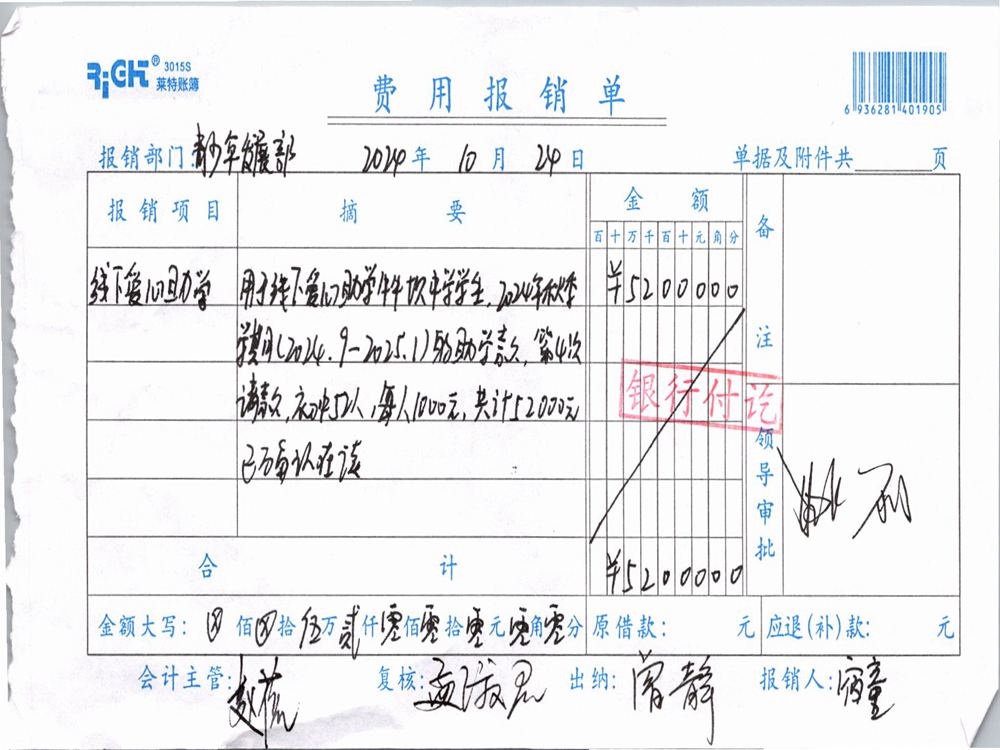 RiGHT® 3015S
莱特账簿
费用报销单
6 936281 401905
报销部门:青少年发展部 2024年10月24日 单据及附件共 页
报销项目 摘要 金额 备注
百十万千百十元角分
线下爱心助学 用于线下爱心助学 中学学生,2024年秋季 ¥5200000
学期(2024.9-2025.1)的助学款,第4次
请款,初中52人,每人1000元,共计52000元
银行付讫
已 确认在读
领导审批
合计 ¥5200000
金额大写: 佰 拾伍万贰仟零佰零拾零元零角零分 原借款: 元 应退(补)款: 元
会计主管: 复核: 出纳:曾静 报销人: